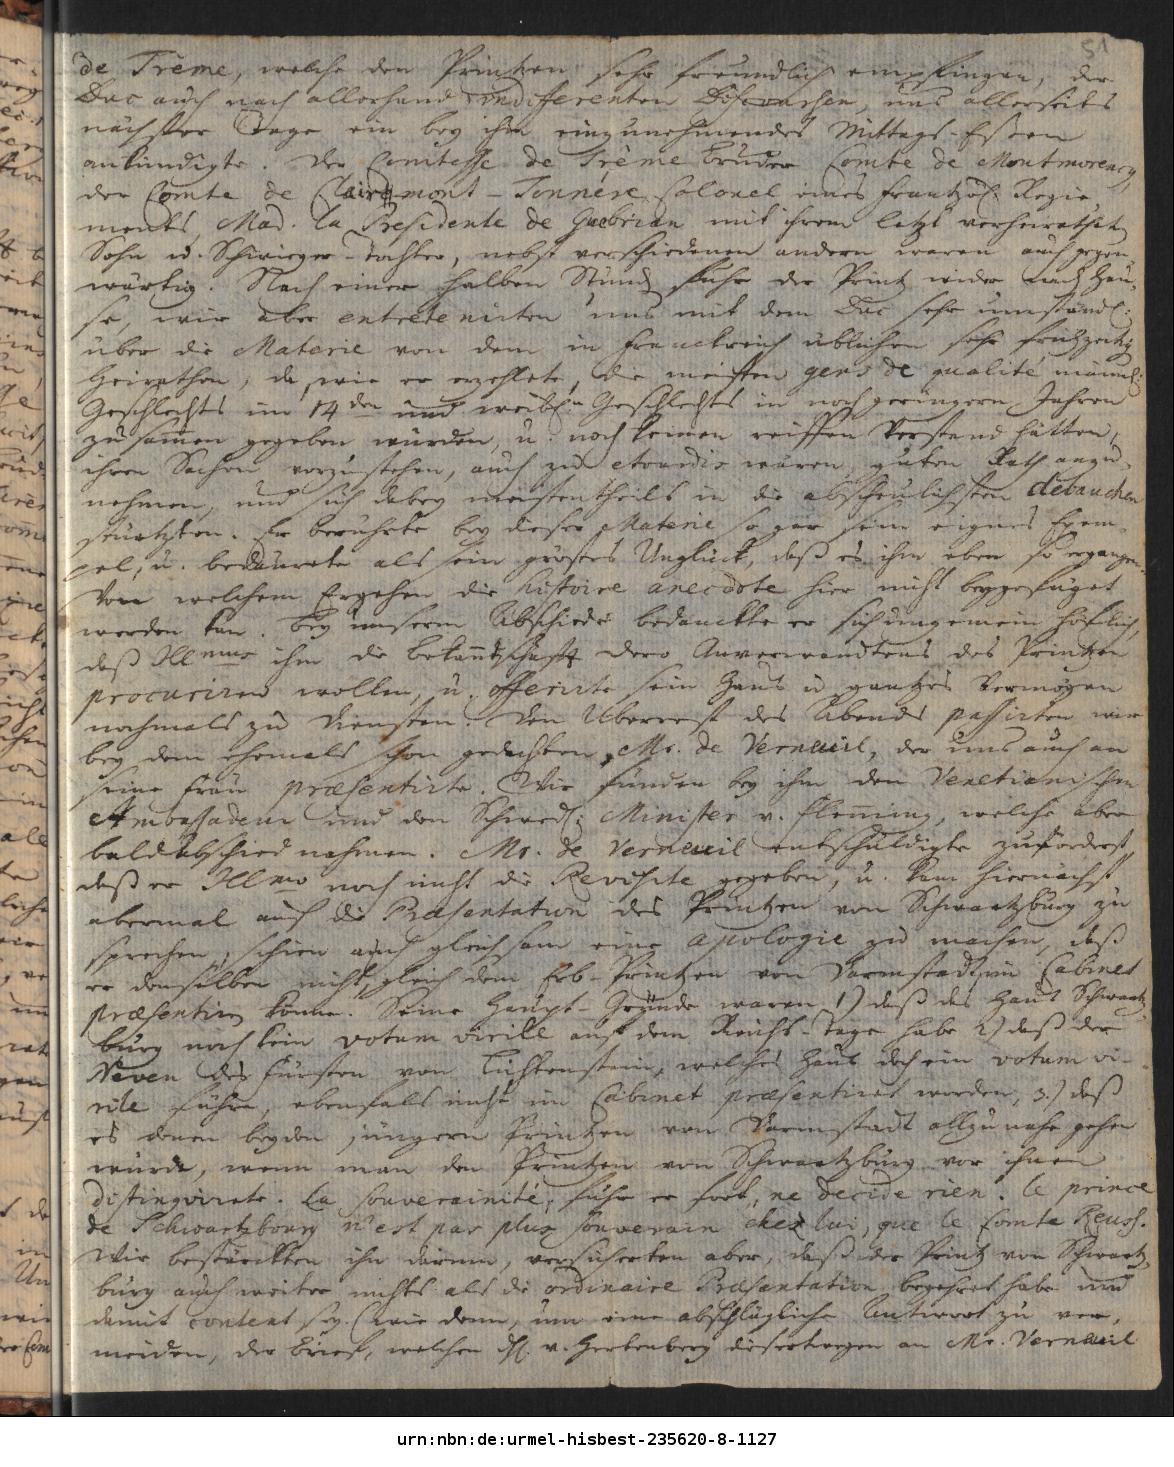 51
de Trême, welche den Printzen sehr freundlich empfingen, der
Duc auch nach allerhand indifferenten Discourshen, uns allerseits
nächster Tage ein bey ihm einzunehmendes Mittags-Essen
ankündigte. Der Comtesse de Trême Bruder Comte de Montmorency,
der Comte de Clairmont-Tonnére Colonel eines frantzös: Regi-
ments, Mad. la Presidente de Guebrian mit ihrem letzt verheirathet
Sohn u. Schwieger-tochter, nebst verschiedenen andern waren auch gegen-
wärtig. Nach einer halben Stund fuhr der Printz wieder nach Hau-
se, wir aber entretenirten uns mit dem Duc sehr umständl:
über die Materie von dem in Franckreich üblichen sehr frühzeitig
Heirathen, da, wie er erzehlete, die meisten gens de qualité männl:
Geschlechts im 14den und weibl:n Geschlechts in noch geringern Jahren
zusammen gegeben würden, u. noch keinen reiffen Verstand hätten,
ihren Sachen vorzustehen, auch zu etourdis wären, guten Rath anzu-
nehmen, und sich dabey meistentheils in die abscheulichsten debauchen
stürtzten. Er berührte bey dieser Materie so gar sein eignes Exem-
pel, u. bedaurete als sein gröstes Unglück, daß es ihm eben so ergangen.
Von welchem Ergehen die histoire anecdote hier nicht beygefüget
werden kan. Bey unserm Abschiede bedanckte er sich ungemein höflich,
daß Illmus ihm die bekanntschafft dero Anverwandtens des Printzen
procuriren wollen, u. offerirte sein Haus u. gantzes Vermögen
nochmals zu Diensten. Den Uberrest des Abends passirten wir
bey dem ehemals schon gedachten Mr. de Verneuil, der uns auch an
seine Frau præsentirte. Wir funden bey ihm den Venetianischen
Ambassadeur und den Schwed: Minister v. Flemming, welche aber
bald Abschied nahmen. Mr. de Verneuil entschuldigte zuförderst,
daß er Illmo noch nicht die Revisite gegeben, u. kam hiernächst
abermal auf die Præsentation des Printzen von Schwartzburg zu
sprechen, schien auch gleichsam eine apologie zu machen, daß
er denselben nicht, gleich dem Erb-Printzen von Darmstadt, im Cabinet
præsentiren könne. Seine Haupt-Gründe waren 1) daß das Haus Schwartz-
burg noch kein votum virile auf dem Reichs-Tage habe 2) daß der
Neveu des Fürsten von Lichtenstein, welches Haus doch ein votum vi-
rile führe, ebenfals nicht im Cabinet præsentiret worden, 3.) daß
es denen beyden jüngern Printzen von Darmstadt allzu nahe gehen
würde, wenn man den Printzen von Schwartzburg vor ihnen
distingvirete. La souverainité, fuhr er fort, ne decide rien. le prince
de Schwartzbourg n'est pas plus souverain chez lui, que le Comte Reuss.
Wir bestärckten ihn darinn, versicherten aber, daß der Printz von Schwartz-
burg auch weiter nichts als die ordinaire Præsentation begehret habe und
damit content sey. (wie denn, um eine abschlägliche Antwort zu ver-
meiden, der Brief, welchen H. v. Hertenberg dieserwegen an Mr. Verneuil
urn:nbn:de:urmel-hisbest-235620-8-1127